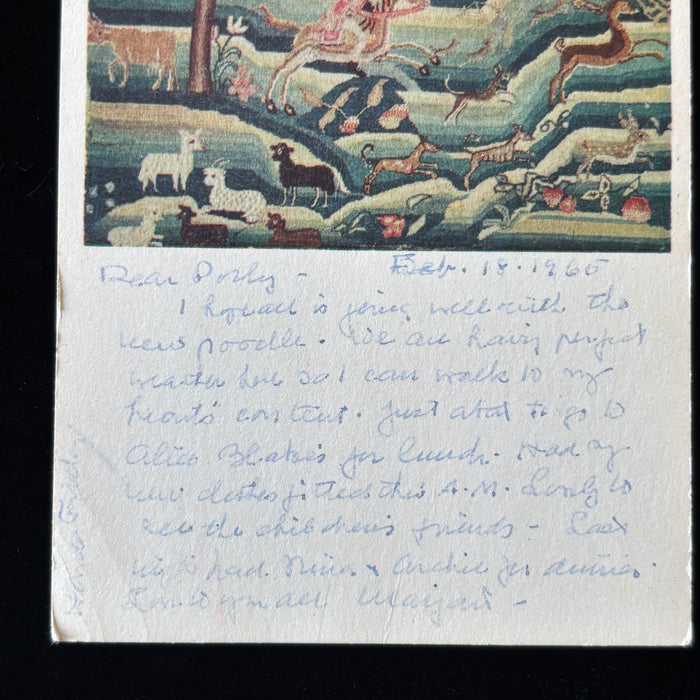 Dear Polly - Feb. 18. 1965
I hope all is going well with the
new poodle. We are having perfect
weather here so I can walk to my
heart's content. Just about to go to
Alice Blake's for lunch. Had my
new clothes fitted this A.M. Lovely to
see the children's friends - Last
had Nina & Archie for dinner.
Love to you all Margaret -
Home Friday